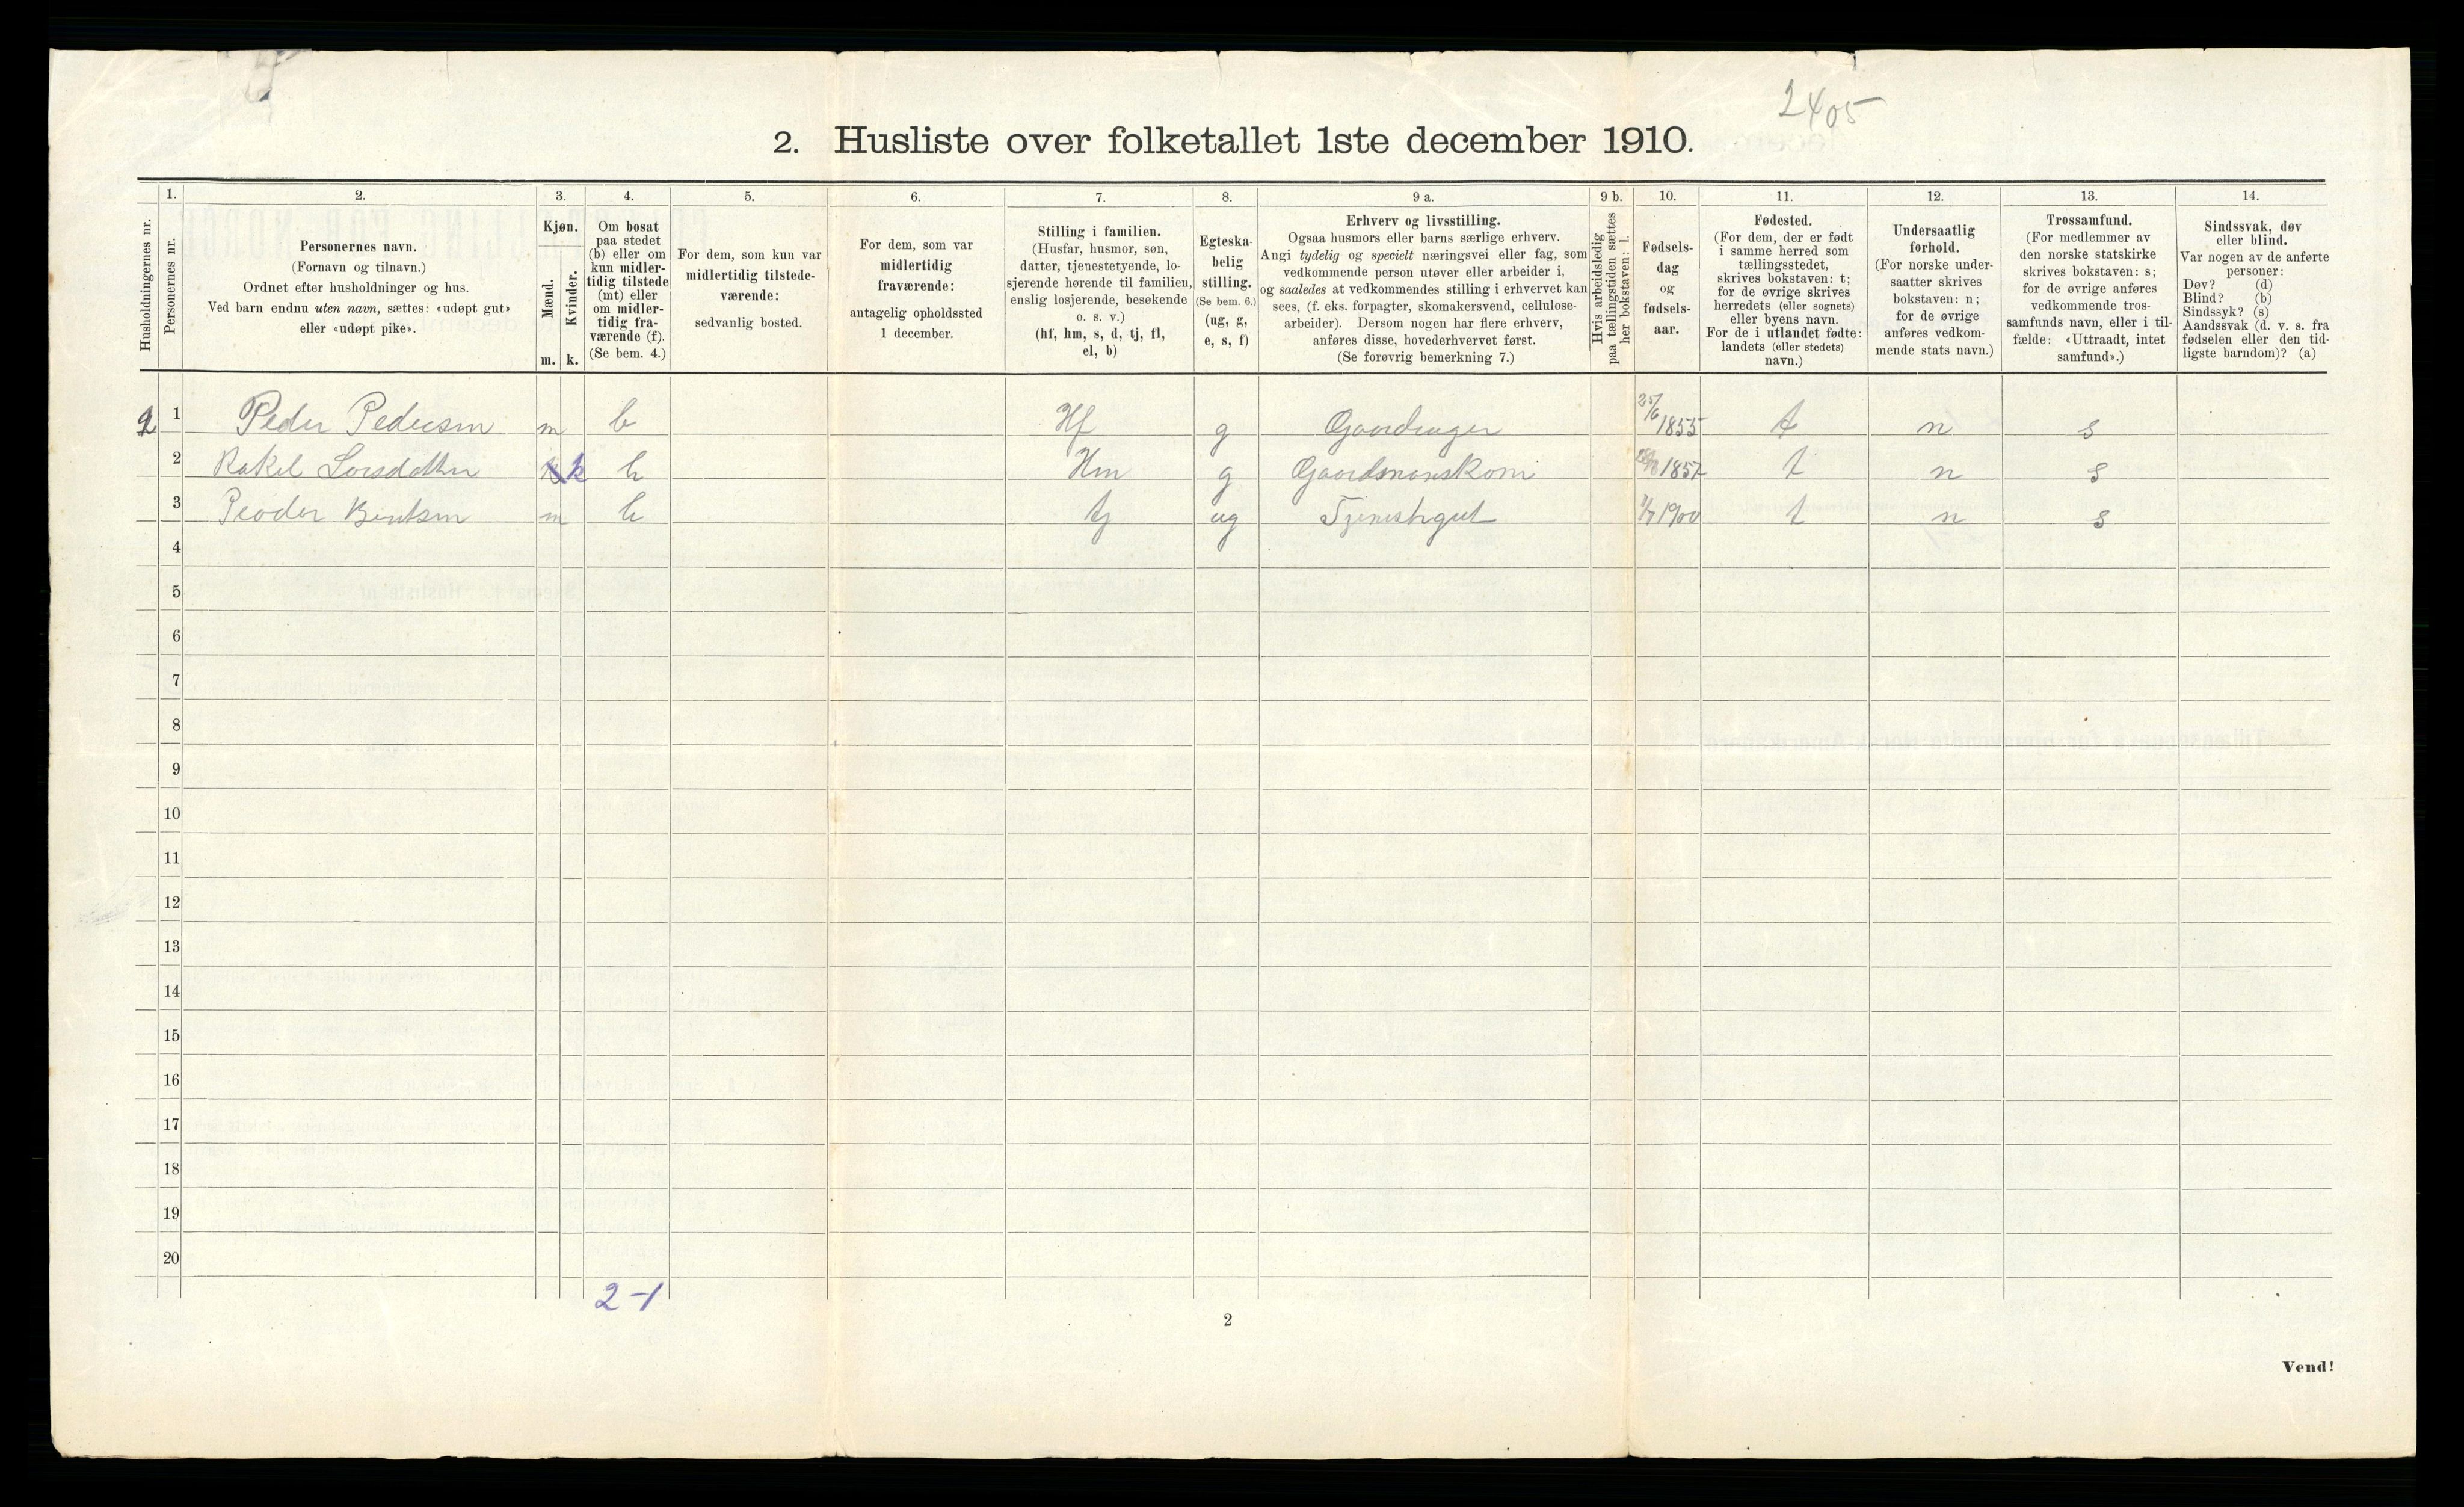 2405
2. Husliste over folketallet 1ste december 1910.
Husholdningernes nr.
1.
Personernes nr.
2.
Personernes navn.
(Fornavn og tilnavn.)
Ordnet efter husholdninger og hus.
Ved barn endnu uten navn, sættes: «udøpt gut»
eller «udøpt pike».
3.
Kjøn.
Mænd.
Kvinder.
m. k.
4.
Om bosat
paa stedet
(b) eller om
kun midler-
tidig tilstede
(mt) eller
om midler-
tidig fra-
værende (f).
(Se bem. 4.)
5.
For dem, som kun var
midlertidig tilstede-
værende:
sedvanlig bosted.
6.
For dem, som var
midlertidig
fraværende:
antagelig opholdssted
1 december.
7.
Stilling i familien.
(Husfar, husmor, søn,
datter, tjenestetyende, lo-
sjerende hørende til familien,
enslig losjerende, besøkende
o. s. v.)
(hf, hm, s, d, tj, fl,
el, b)
8.
Egteska-
belig
stilling.
(Se bem. 6.)
(ug, g,
e, s, f)
9 a.
Erhverv og livsstilling.
Ogsaa husmors eller barns særlige erhverv.
Angi tydelig og specielt næringsvei eller fag, som
vedkommende person utøver eller arbeider i,
og saaledes at vedkommendes stilling i erhvervet kan
sees, (f. eks. forpagter, skomakersvend, cellulose-
arbeider). Dersom nogen har flere erhverv,
anføres disse, hovederhvervet først.
(Se forøvrig bemerkning 7.)
9 b.
Hvis arbeidsledig
paa tællingstiden sættes
her bokstaven: l.
10.
Fødsels-
dag
og
fødsels-
aar.
11.
Fødested.
(For dem, der er født
i samme herred som
tællingsstedet,
skrives bokstaven: t;
for de øvrige skrives
herredets (eller sognets)
eller byens navn.
For de i utlandet fødte:
landets (eller stedets)
navn.)
12.
Undersaatlig
forhold.
(For norske under-
saatter skrives
bokstaven: n;
for de øvrige
anføres vedkom-
mende stats navn.)
13.
Trossamfund.
(For medlemmer av
den norske statskirke
skrives bokstaven: s;
for de øvrige anføres
vedkommende tros-
samfunds navn, eller i til-
fælde: «Uttraadt, intet
samfund».)
14.
Sindssvak, døv
eller blind.
Var nogen av de anførte
personer:
Døv? (d)
Blind? (b)
Sindssyk? (s)
Aandssvak (d. v. s. fra
fødselen eller den tid-
ligste barndom)? (a)
1 Peder Pedersen m b Hf g 25/6 1855 t n s
2 Rakel Larsdatter k b Hm g Gaardmanskone t n s
3 Peder Bentsen m b tj ug Tjenestegut 1900 t n s
4
5
6
7
8
9
10
11
12
13
14
15
16
17
18
19
20
2-1
2
Vend!